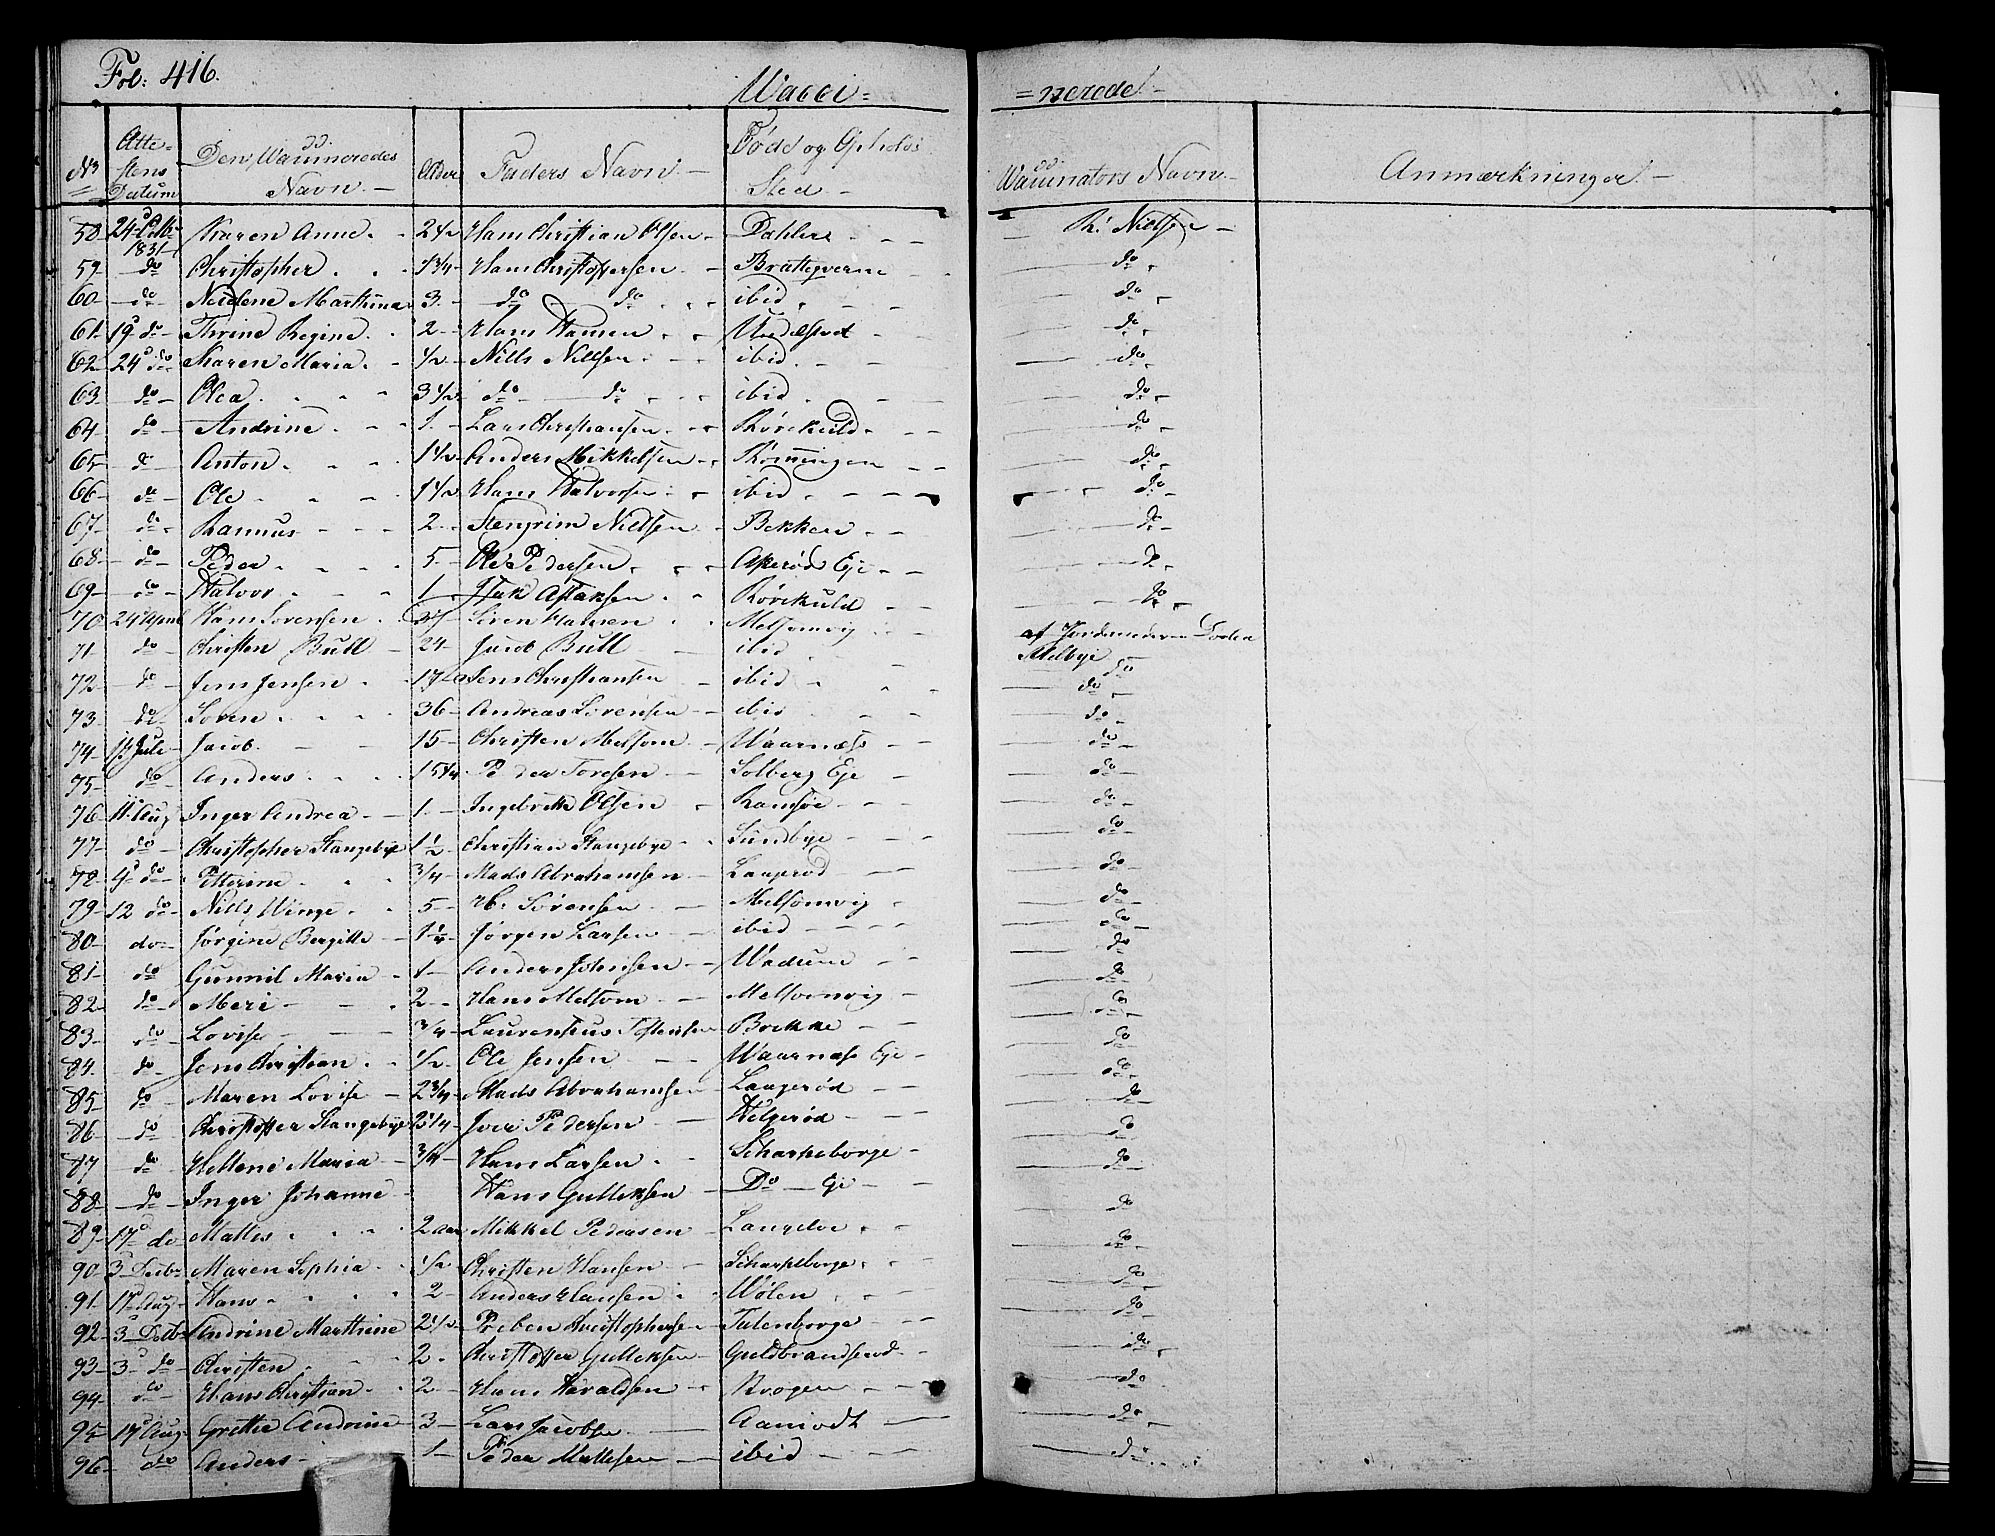 Fol: 416.
Vacci= =nerede.
No Atte- stens Datum Den Vaccineredes Navn Alder Faders Navn Føde og Opholds Sted Vaccinators Navn Anmærkninger
58 24 Octbr 1831 Karen Anne 2 1/2 Hans Christian Olsen Dahler R: Nielsen
59 do Christopher 1 3/4 Hans Christophersen Bratteqverne do
60 do Nicolene Marthina 3 do do ibid do
61 19 do Thrine Regine 2 Hans Hansen Undelstvet do
62 24 do Karen Maria 1/2 Niels Nielsen ibid do
63 do Olea 3 1/2 do do ibid do
64 do Andrine 1 Lars Christiansen Rørekuld do
65 do Anton 1 1/2 Anders Mikkelsen Rømingen do
66 do Ole 1 1/2 Hans Halvorsen ibid do
67 do Rasmus 2 Stengrim Nielsen Bekken do
68 do Peder 5 Ole Pedersen Askerød Eje do
69 do Halvor 1 Isak Isaksen Rørekuld do
70 24 April Hans Sørensen 37 Søren Hansen Melsomvig af Jordemoderen Dorthea Melbye
71 do Christen Bull 24 Jacob Bull ibid do
72 do Jens Jensen 17 Jens Christiansen ibid do
73 do Søren 36 Andreas Sørensen ibid do
74 14 Juli Jacob 15 Christen Melsom Vaarnæs do
75 do Anders 15 1/4 Peder Toresen Solberg Eje do
76 11 Aug Inger Andrea 1 Ingebrettt Olsen Ramsøe do
77 do Christopher Stangebye 1 1/2 Christian Stangebye Sundbye do
78 4 do Petterine 3/4 Mads Abrahamsen Laagerød do
79 12 do Niels Winge 5 H: Sørensen Melsomvig do
80 do Jørgine Bergitte 1 1/4 Jørgen Larsen ibid do
81 do Gunnil Maria 1 Anders Johnsen Wadum do
82 do Meri 2 Hans Melsom Melsomvig do
83 do Lovise 3/4 Laurentius Tostensen Brekke do
84 do Jens Christian 1/2 Ole Jensen Vaarnæs Eje do
85 do Maren Lovise 2 3/4 Mads Abrahamsen Laagerød do
86 do Christoffer Stangebye 2 1/4 Iver Pedersen Helgerød do
87 do Hellene Maria 3/4 Hans Larsen Scharpeborge do
88 do Inger Johanne Hans Gulliksen Do Eje do
89 17 do Mattis 2 aar Mikkel Pedersen Langeloe do
90 3 Decbr Maren Sophia 1/2 Christen Hansen Scharpeborge do
91 17 Aug Hans 2 Anders Hansen Wølen do
92 3 Decbr Andrine Marthine 2 1/2 Preben Christophersen Tulenborge do
93 3 do Christen 2 Christoffer Gulliksen Guldbrandserød do
94 do Hans Christian 2 Hans Haraldsen Krogen do
95 17 Aug Grethe Andrine 3 Lars Jacobsen Aamodt do
96 do Anders 1 Peder Mattesen ibid do